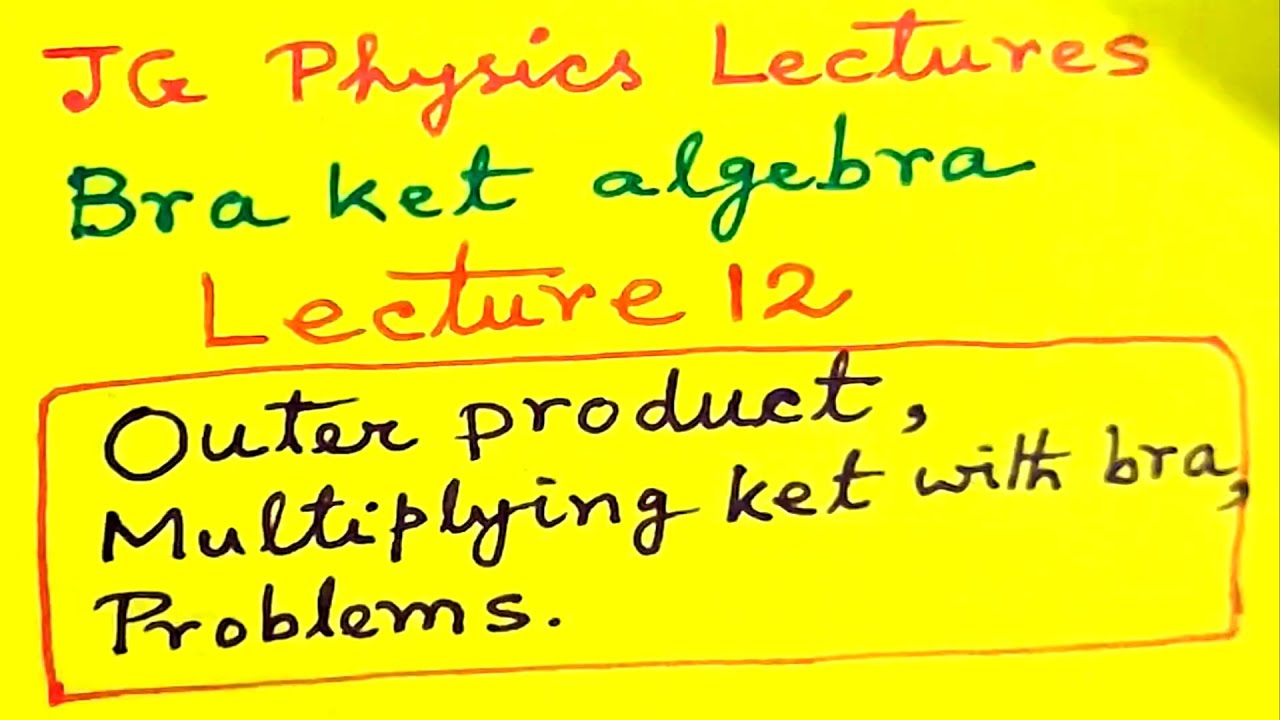 JG Physics Lectures
Bra ket algebra
Lecture 12
Outer product,
Multiplying ket with bra,
Problems.